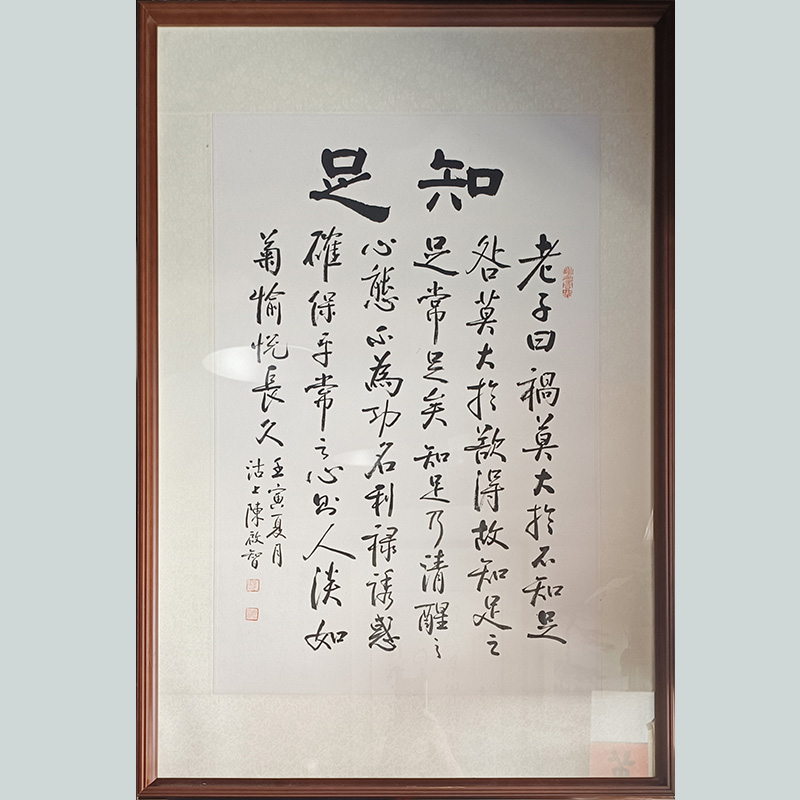 知足
老子曰禍莫大於不知足
咎莫大於欲得故知足之
足常足矣知足乃清醒之
心態不為功名利祿誘惑
確保平常之心則人淡如
菊愉悦長久
壬寅夏月
沽上陳啟智